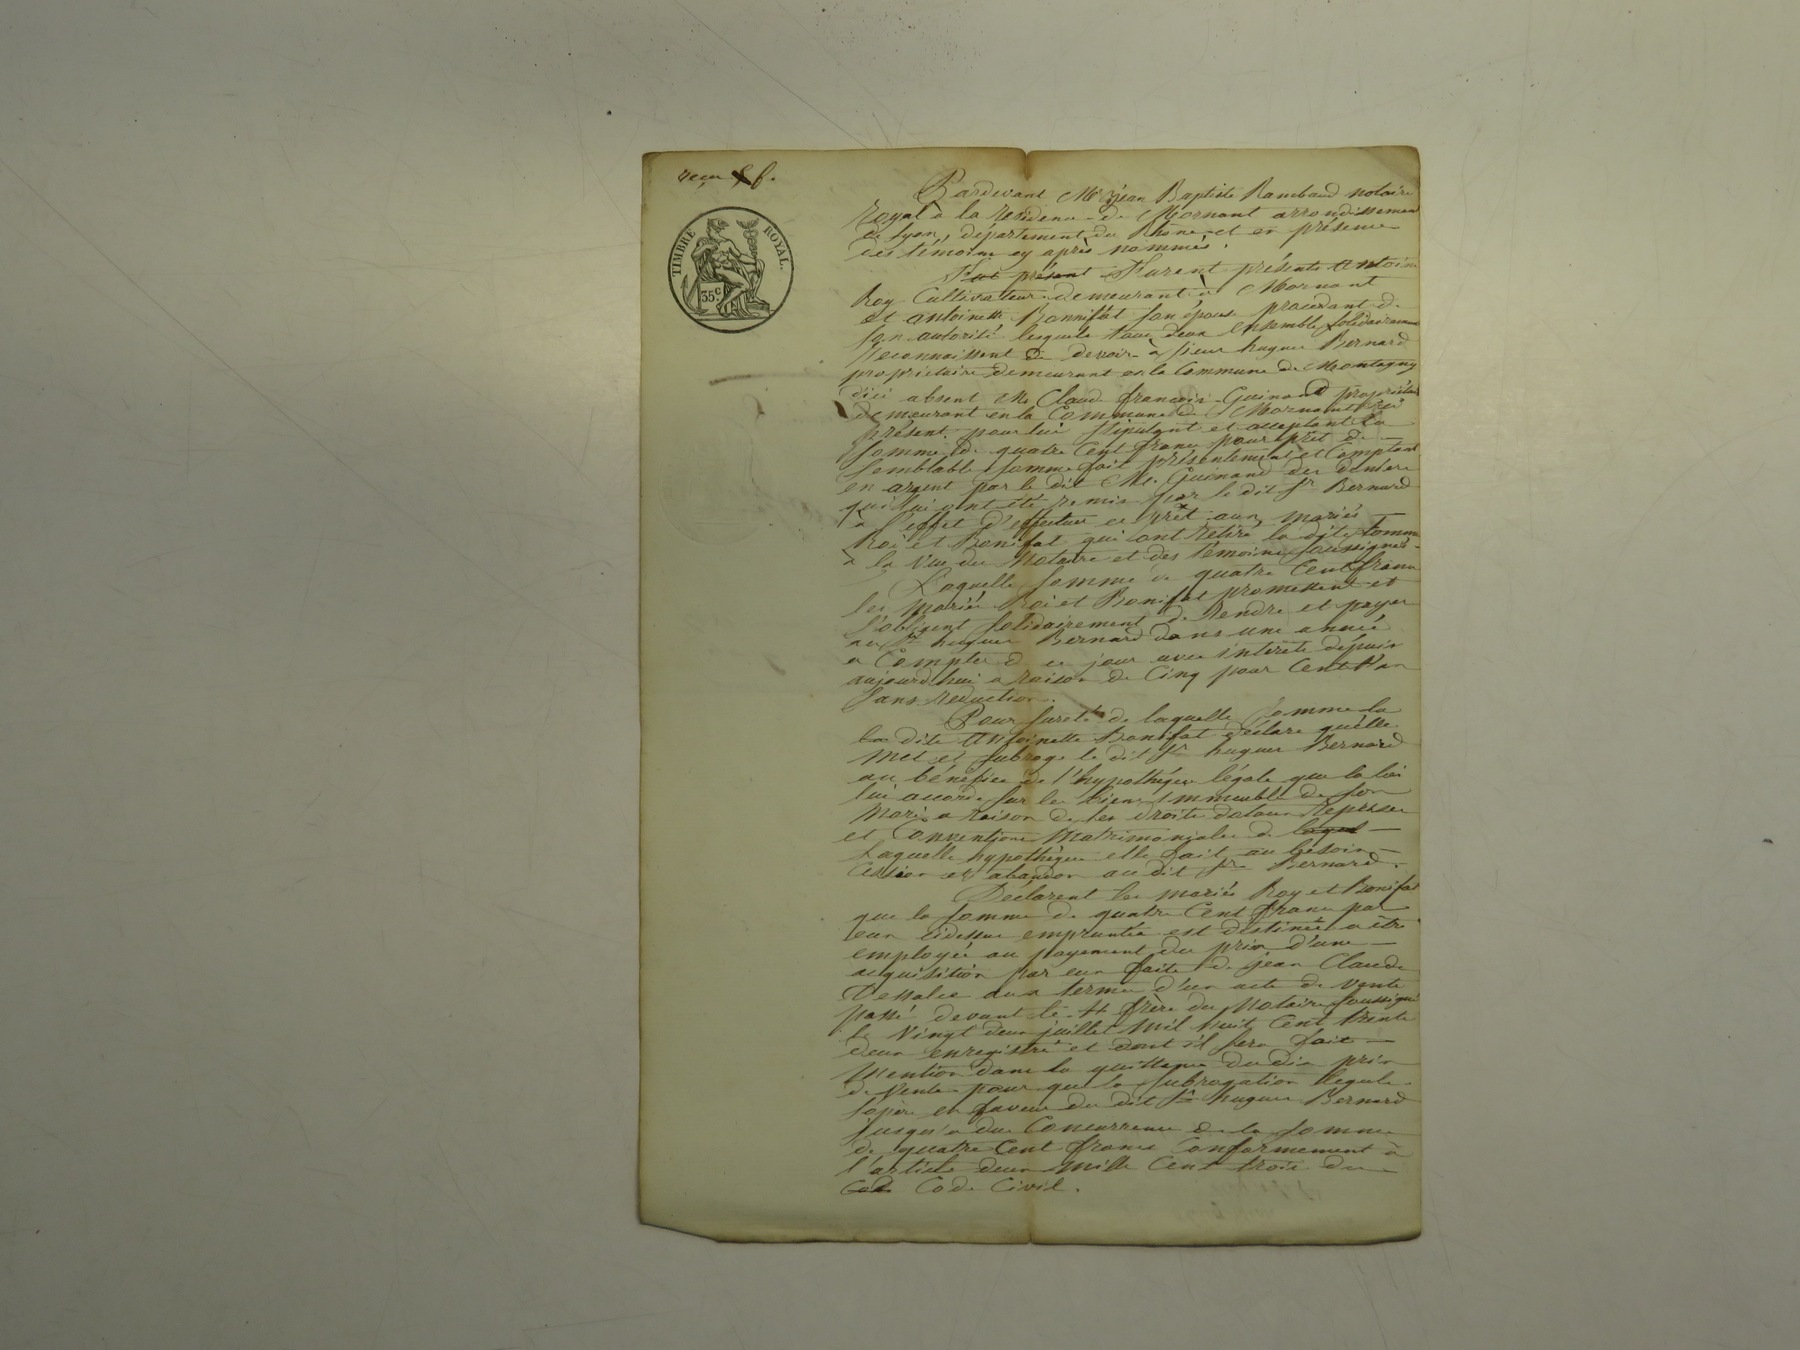 reçu f.
TIMBRE ROYAL.
35c
Pardevant Me jean Baptiste Rambaud notaire
Royal à la residence de Mornant arrondissement
de Lyon, département du Rhône et en présence
des témoins cy après nommés.
Fut présent Furent présents Antoine
Roy Cultivateur demeurant à Mornant
et antoinette Bonnifat son épouse procédant de
son autorité lesquels tous deux ensemble solidairement
reconnaissent de devoir à sieur hugues Bernard
propriétaire demeurant en la Commune de Montagny
d'ici absent Mr Claude françois Guinand propriétaire
demeurant en la Commune de Mornant ici
présent pour lui stipulant et acceptant la
somme de quatre Cent francs pour prêt de
semblable somme fait présentement et Comptant
en argent par le dit Mr. Guinand des deniers
qui lui ont été remis par le dit Sr Bernard
à l'effet d'effectuer ce prêt aux mariés
Roi et Bonifat qui ont retiré la dite somme
à la vue du Notaire et des témoins soussignés
Laquelle somme de quatre Cent francs
les mariés Roi et Bonifat promettent et
s'obligent solidairement de Rendre et payer
au Sr hugues Bernard dans une année
a Compter de ce jour avec intérêts depuis
aujourd'hui a raison de Cinq pour Cent l'an
sans réduction.
Pour sureté de laquelle somme la
la dite Antoinette Bonifat déclare quelle
met et subroge le dit Sr hugues Bernard
au bénéfice de l'hypothèque légale que la loi
lui accorde sur les biens immeubles de son
Mari a raison de ses droits dotaux reprises
et Conventions Matrimoniales de laquel
Laquelle hypothèque elle fait au besoin
Cession et abandon au dit Sr Bernard.
Déclarent les mariés Roy et Bonifat
que la somme de quatre Cent francs par
eux cidessus empruntée est destinée a être
employée au payement du prix d'une
acquisition par eux faite de jean Claude
aux termes d'un acte de vente
passé devant le frère du Notaire soussigné
le Vingt deux juillet Mil huit Cent trente
deux enregistré et dont il sera fait
Mention dans la quittance du dit prix
de vente pour que la subrogation légale
sopère en faveur du dit Sr hugues Bernard
jusqu'a due Concurrence de la somme
de quatre Cent francs Conformement à
l'article deux Mille Cent trois du
Code Code Civil.